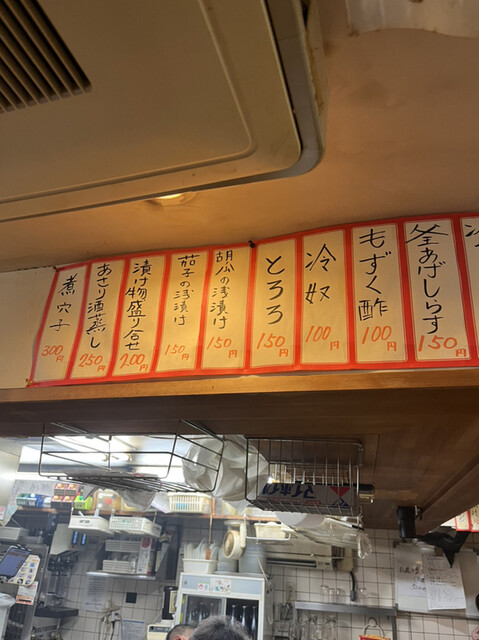 釜あげしらす
150円
もずく酢
100円
冷奴
100円
とろろ
150円
胡瓜の浅漬け
150円
茄子の浅漬け
150円
漬け物盛り合せ
200円
あさり酒蒸し
250円
煮穴子
300円